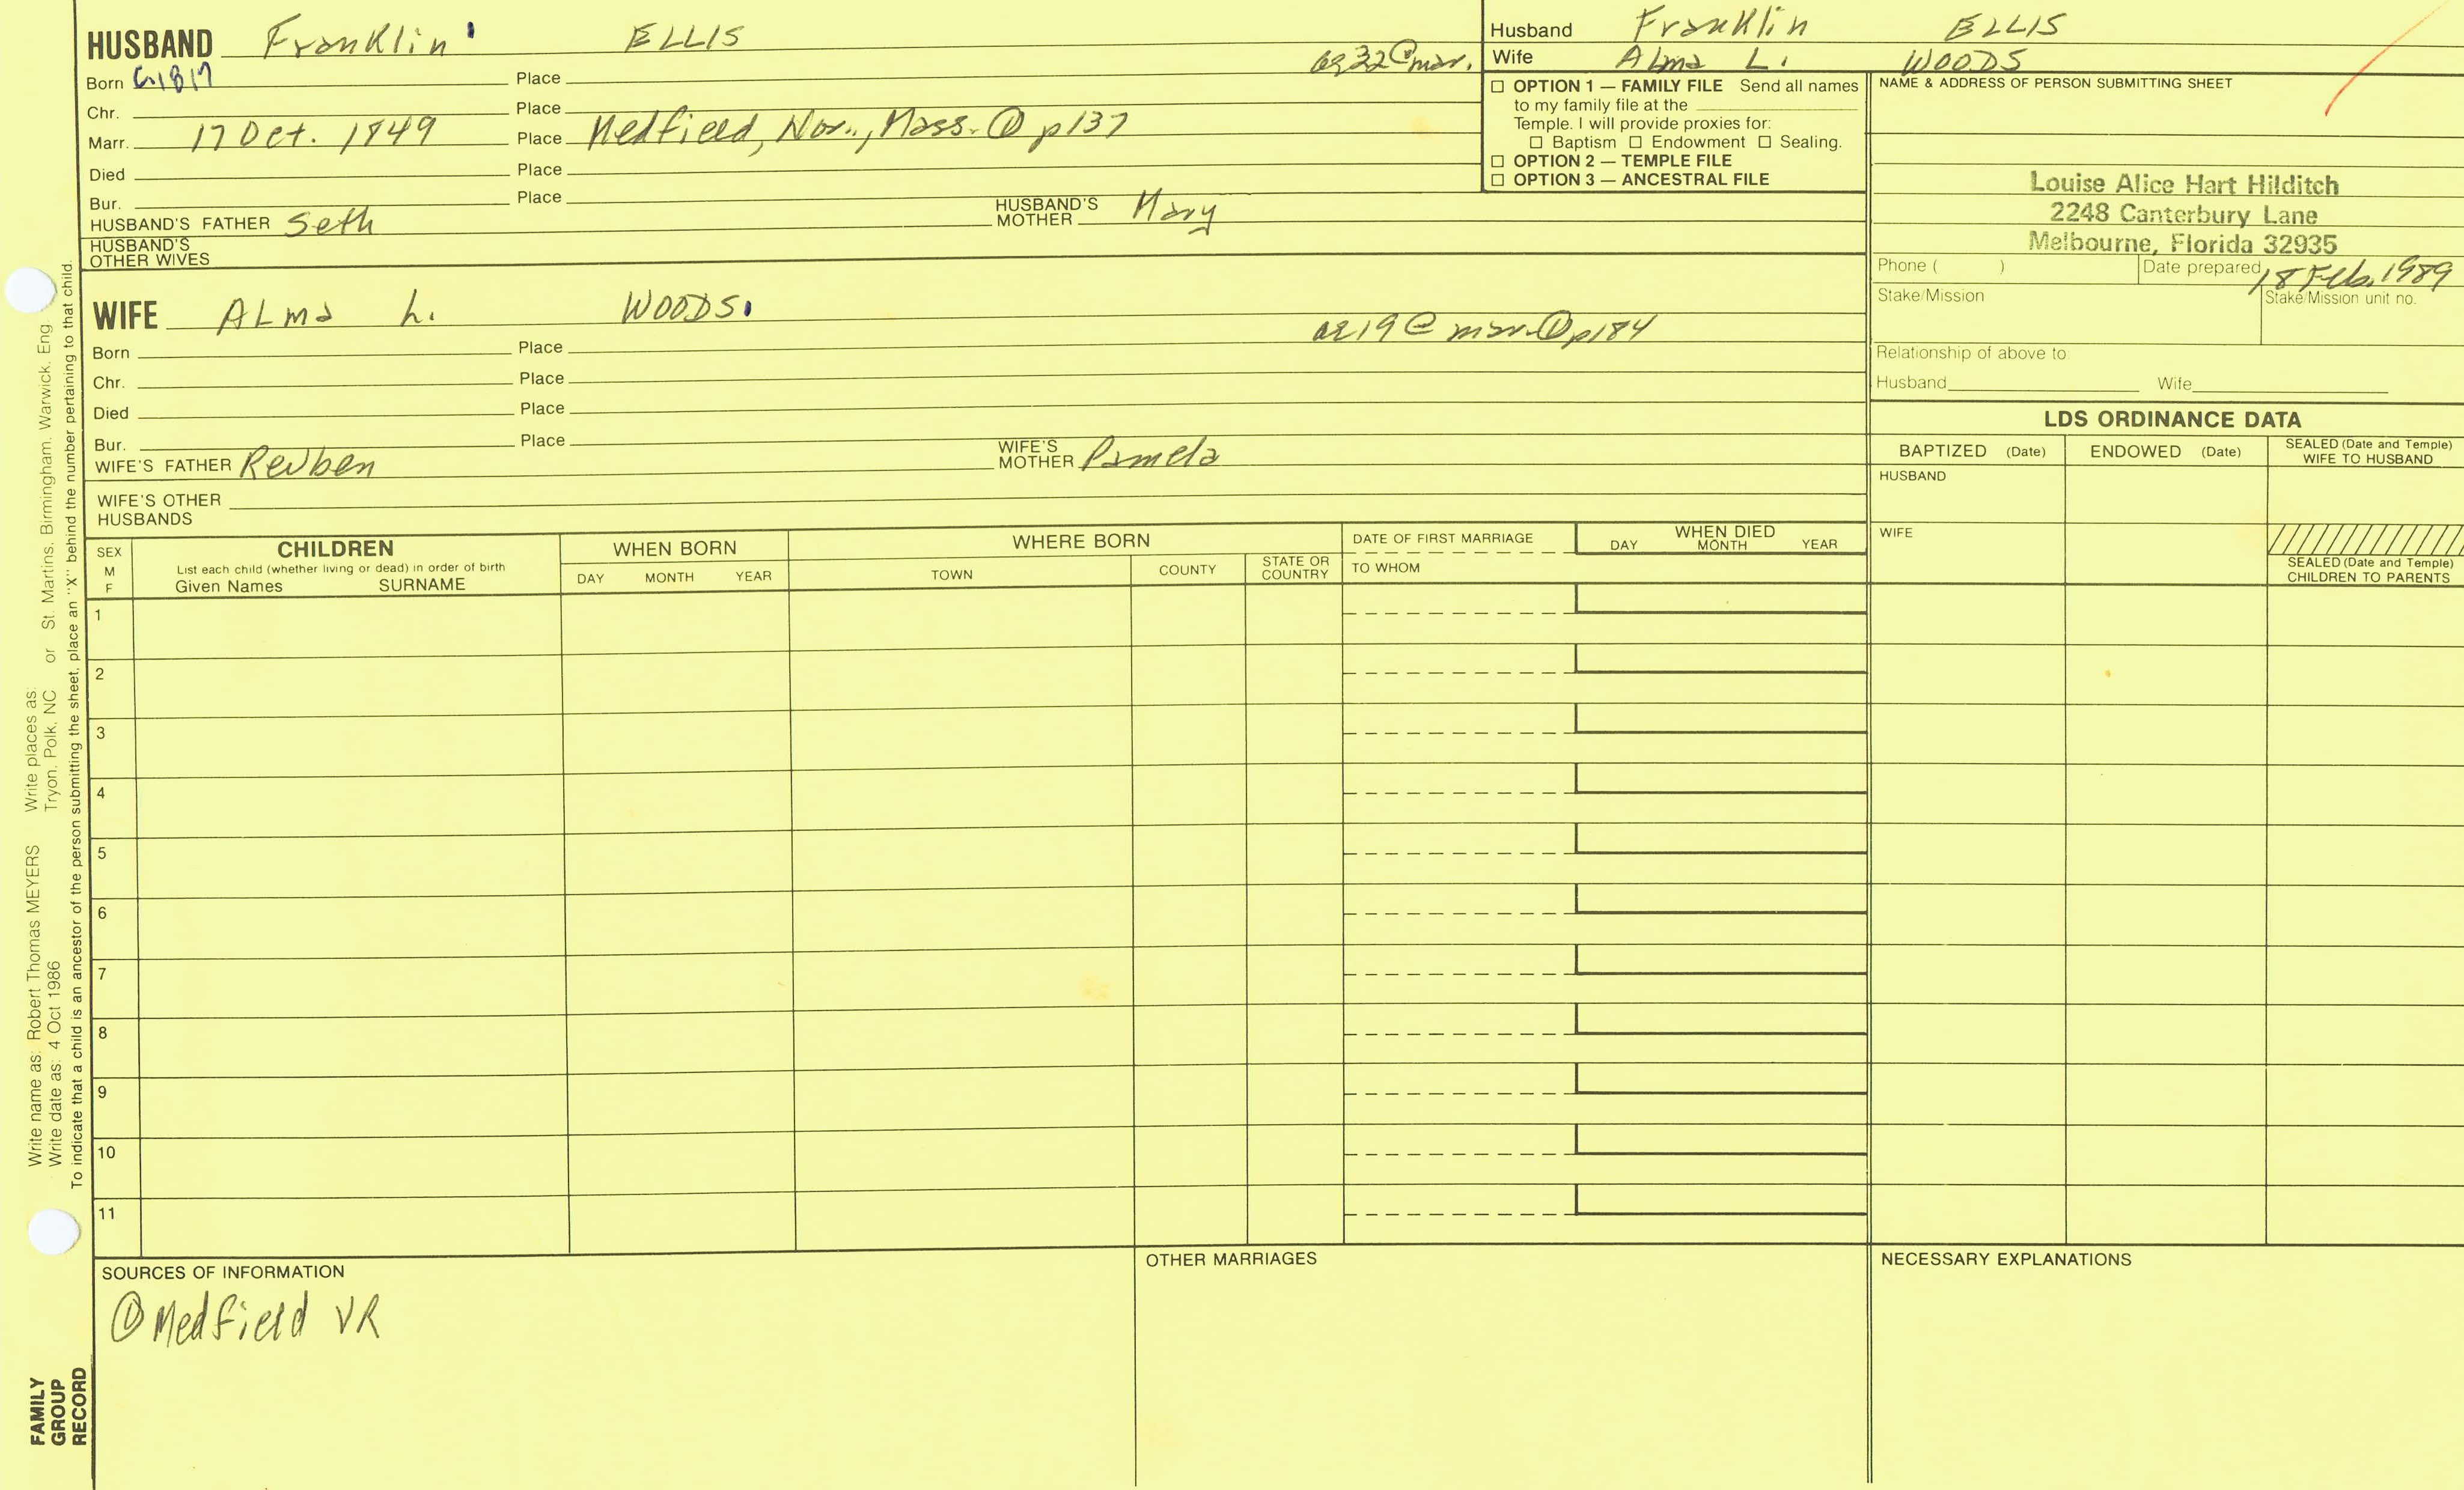 HUSBAND Franklin ELLIS
ag 32 @ mar.
Born c. 1817 Place
Chr. Place
Marr. 17 Oct. 1849 Place Medfield, Nor., Mass. ① p137
Died Place
Bur. Place
HUSBAND'S FATHER Seth HUSBAND'S MOTHER Mary
HUSBAND'S OTHER WIVES
WIFE Alma L. WOODS.
ae 19 @ mar. ① p184
Born Place
Chr. Place
Died Place
Bur. Place
WIFE'S FATHER Reuben WIFE'S MOTHER Pamela
WIFE'S OTHER HUSBANDS
Husband Franklin ELLIS
Wife Alma L. WOODS
☐ OPTION 1 — FAMILY FILE Send all names
to my family file at the
Temple. I will provide proxies for:
☐ Baptism ☐ Endowment ☐ Sealing.
☐ OPTION 2 — TEMPLE FILE
☐ OPTION 3 — ANCESTRAL FILE
NAME & ADDRESS OF PERSON SUBMITTING SHEET
Louise Alice Hart Hilditch
2248 Canterbury Lane
Melbourne, Florida 32935
Phone ( ) Date prepared 18 Feb. 1989
Stake/Mission Stake/Mission unit no.
Relationship of above to
Husband Wife
LDS ORDINANCE DATA
BAPTIZED (Date) ENDOWED (Date) SEALED (Date and Temple) WIFE TO HUSBAND
HUSBAND
WIFE
SEALED (Date and Temple) CHILDREN TO PARENTS
SEX M F
CHILDREN
List each child (whether living or dead) in order of birth
Given Names SURNAME
WHEN BORN
DAY MONTH YEAR
WHERE BORN
TOWN COUNTY STATE OR COUNTRY
DATE OF FIRST MARRIAGE
TO WHOM
WHEN DIED
DAY MONTH YEAR
1
2
3
4
5
6
7
8
9
10
11
SOURCES OF INFORMATION
① Medfield VR
OTHER MARRIAGES
NECESSARY EXPLANATIONS
Write name as: Robert Thomas MEYERS Write places as:
Write date as: 4 Oct 1986 Tryon, Polk, NC or St. Martins, Birmingham, Warwick, Eng.
To indicate that a child is an ancestor of the person submitting the sheet, place an "X" behind the number pertaining to that child.
FAMILY
GROUP
RECORD